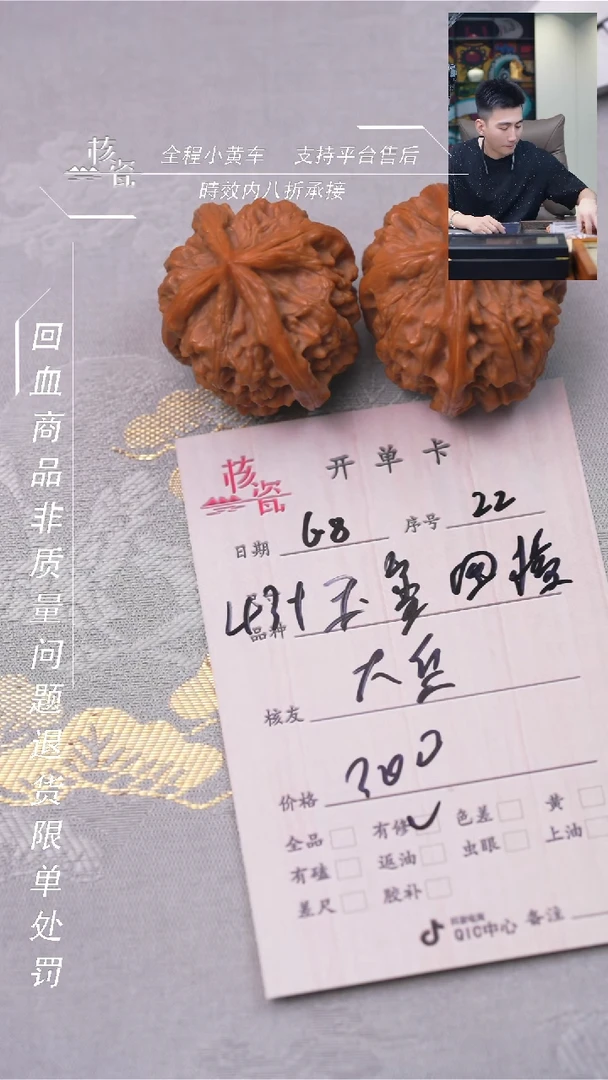 核瓷
全程小黄车 支持平台售后
時效内八折承接
回血商品非质量问题退货限单处罚
核瓷
开单卡
日期 68 序号 22
品种
核友 大兵
价格 300
全品 有修 色差 黄
有磕 返油 虫眼 上油
差尺 胶补
QIC中心 备注